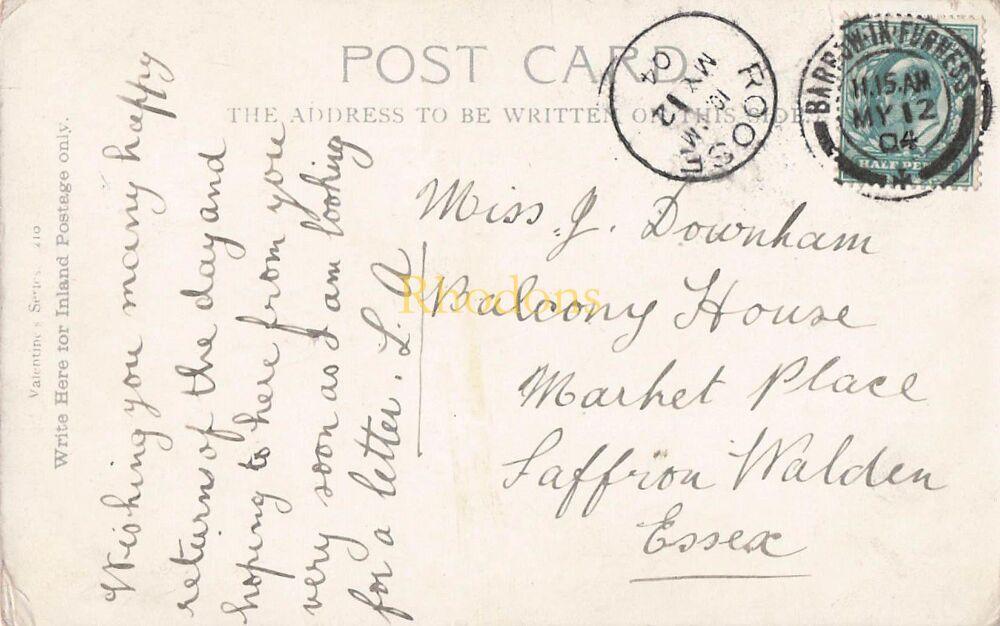 POST CARD.
THE ADDRESS TO BE WRITTEN ON THIS SIDE.
Valentine's Series. 210
Write Here for Inland Postage only.
Wishing you many happy
returns of the day and
hoping to here from you
very soon as I am looking
for a letter. L. A
Miss. J. Downham
Balcony House
Market Place
Saffron Walden
Essex
ROOSE
MY 12
04
BARROW-IN-FURNESS
11.15 AM
MY 12
04
HALF PENNY
Rhodons